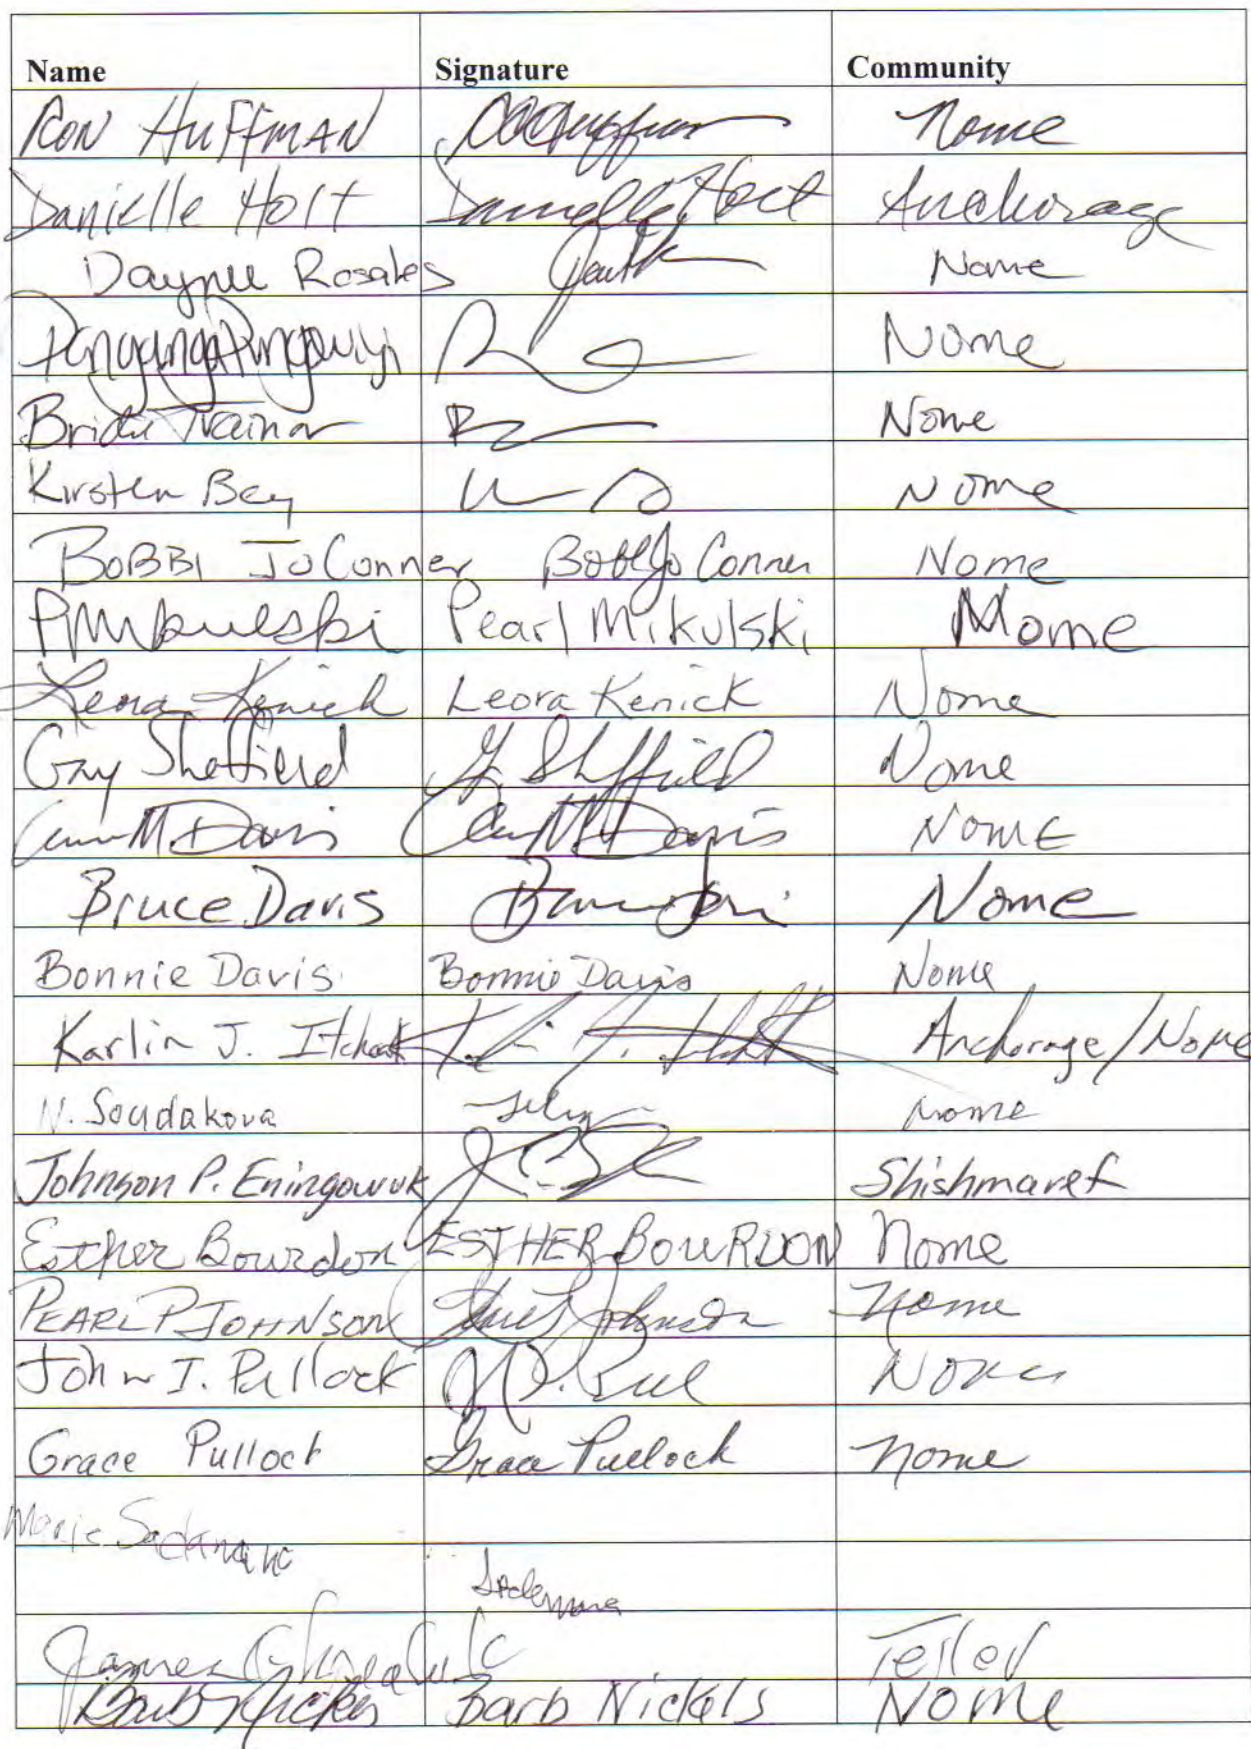 Name Signature Community
Ron Huffman Nome
Danielle Holt Danielle Holt Anchorage
Daynee Rosales Nome
Nome
Bridie Trainor Nome
Kirsten Bey Nome
BOBBI Jo Conner Bobbi Jo Conner Nome
PMikulski Pearl Mikulski Nome
Leora Kenick Leora Kenick Nome
Gay Sheffield G. Sheffield Nome
M. Davis M. Davis NomE
Bruce Davis Bruce Davis Nome
Bonnie Davis Bonnie Davis Nome
Karlin J. Itchoak Anchorage/Nome
N. Soudakova Nome
Johnson P. Eningowuk Shishmaref
Esther Bourdon ESTHER BOURDON Nome
PEARL P JOHNSON Johnson Nome
John I. Pullock Nome
Grace Pullock Grace Pullock Nome
Marie
James Teller
Barb Nickels Barb Nickels Nome